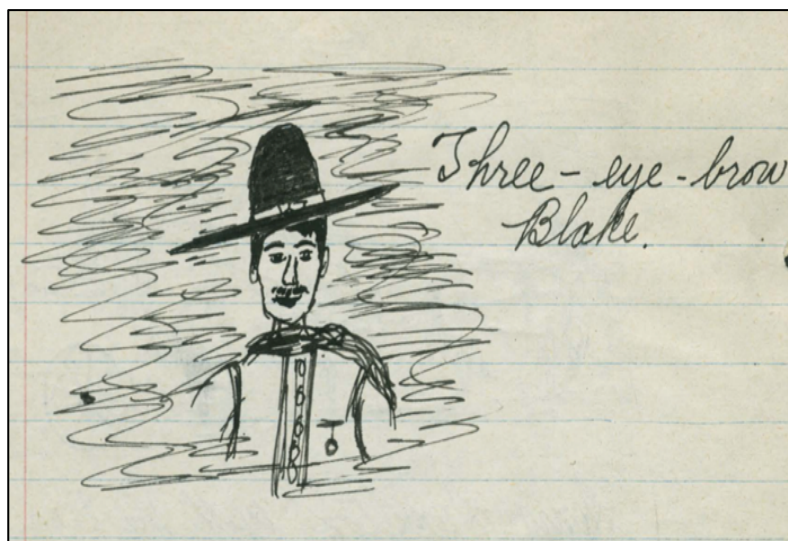 Three-eye-brow
Blake.